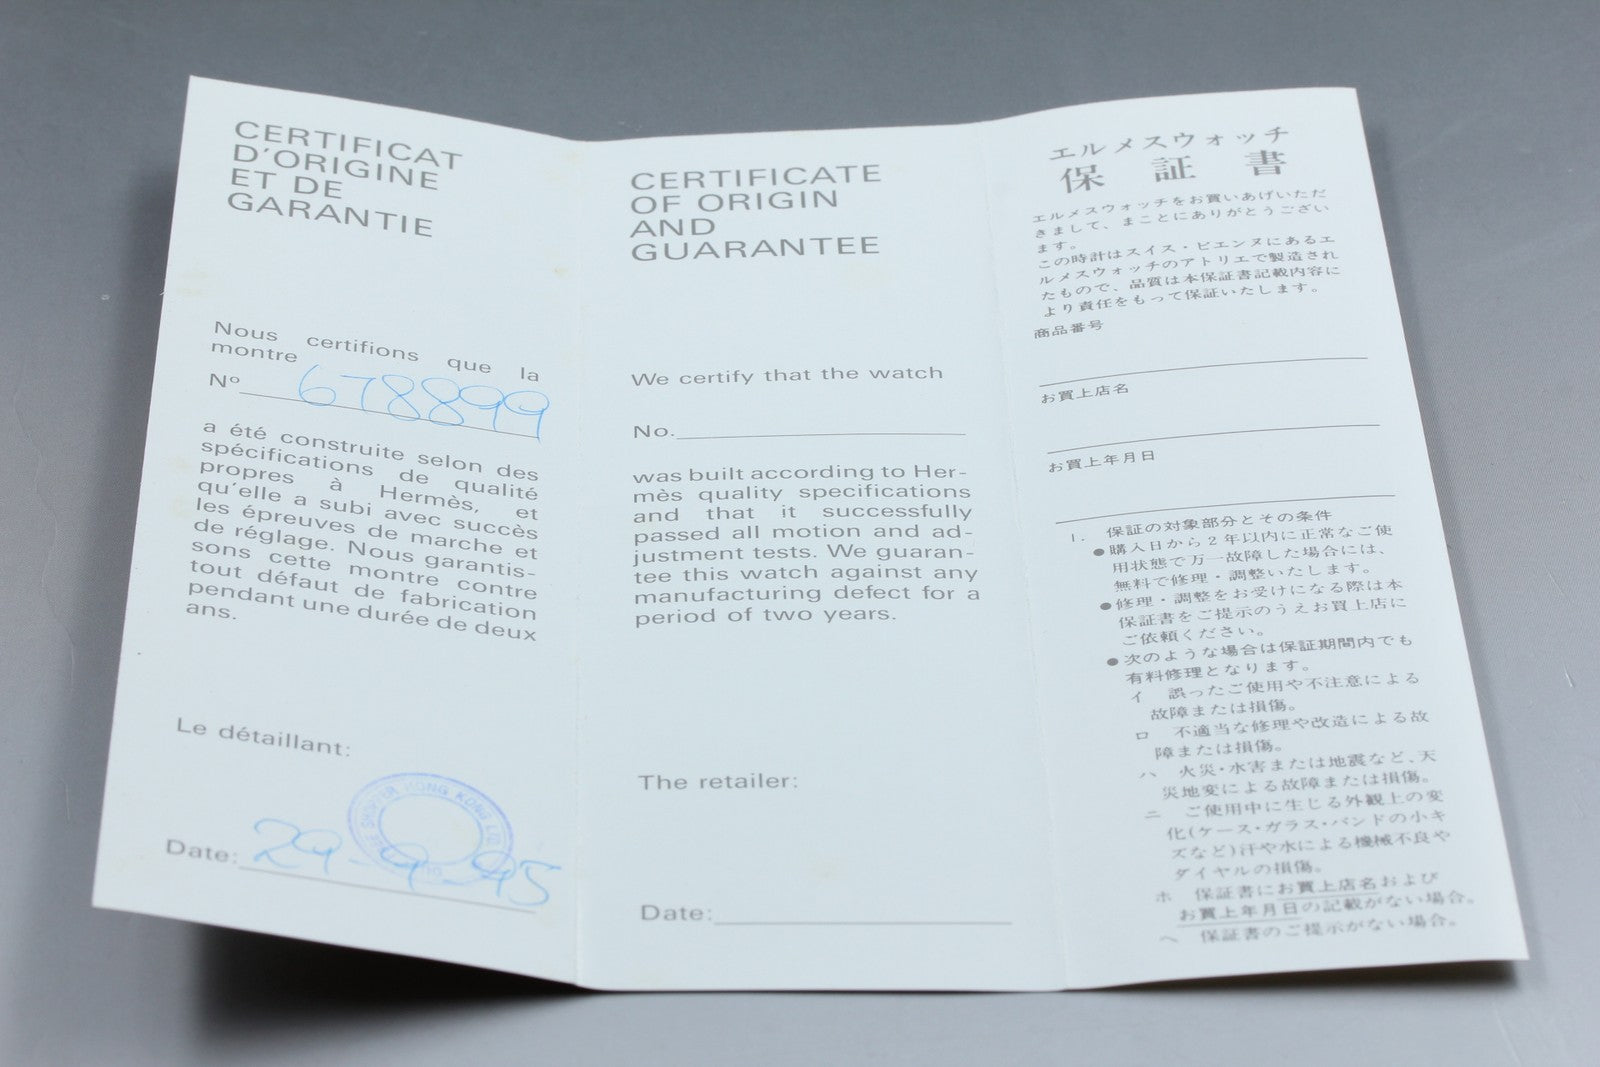 CERTIFICAT
D'ORIGINE
ET DE
GARANTIE
Nous certifions que la
montre
Nº 678899
a été construite selon des
spécifications de qualité
propres à Hermès, et
qu'elle a subi avec succès
les épreuves de marche et
de réglage. Nous garantis-
sons cette montre contre
tout défaut de fabrication
pendant une durée de deux
ans.
Le détaillant:
HONG KONG LTD
Date: 29-9-95
CERTIFICATE
OF ORIGIN
AND
GUARANTEE
We certify that the watch
No.
was built according to Her-
mès quality specifications
and that it successfully
passed all motion and ad-
justment tests. We guaran-
tee this watch against any
manufacturing defect for a
period of two years.
The retailer:
Date:
エルメスウォッチ
保証書
エルメスウォッチをお買いあげいただ
きまして、まことにありがとうござい
ます。
この時計はスイス・ビエンヌにあるエ
ルメスウォッチのアトリエで製造され
たもので、品質は本保証書記載内容に
より責任をもって保証いたします。
商品番号
お買上店名
お買上年月日
1. 保証の対象部分とその条件
●購入日から2年以内に正常なご使
用状態で万一故障した場合には、
無料で修理・調整いたします。
●修理・調整をお受けになる際は本
保証書をご提示のうえお買上店に
ご依頼ください。
●次のような場合は保証期間内でも
有料修理となります。
イ 誤ったご使用や不注意による
故障または損傷。
ロ 不適当な修理や改造による故
障または損傷。
ハ 火災・水害または地震など、天
災地変による故障または損傷。
ニ ご使用中に生じる外観上の変
化(ケース・ガラス・バンドの小キ
ズなど)汗や水による機械不良や
ダイヤルの損傷。
ホ 保証書にお買上店名および
お買上年月日の記載がない場合。
ヘ 保証書のご提示がない場合。